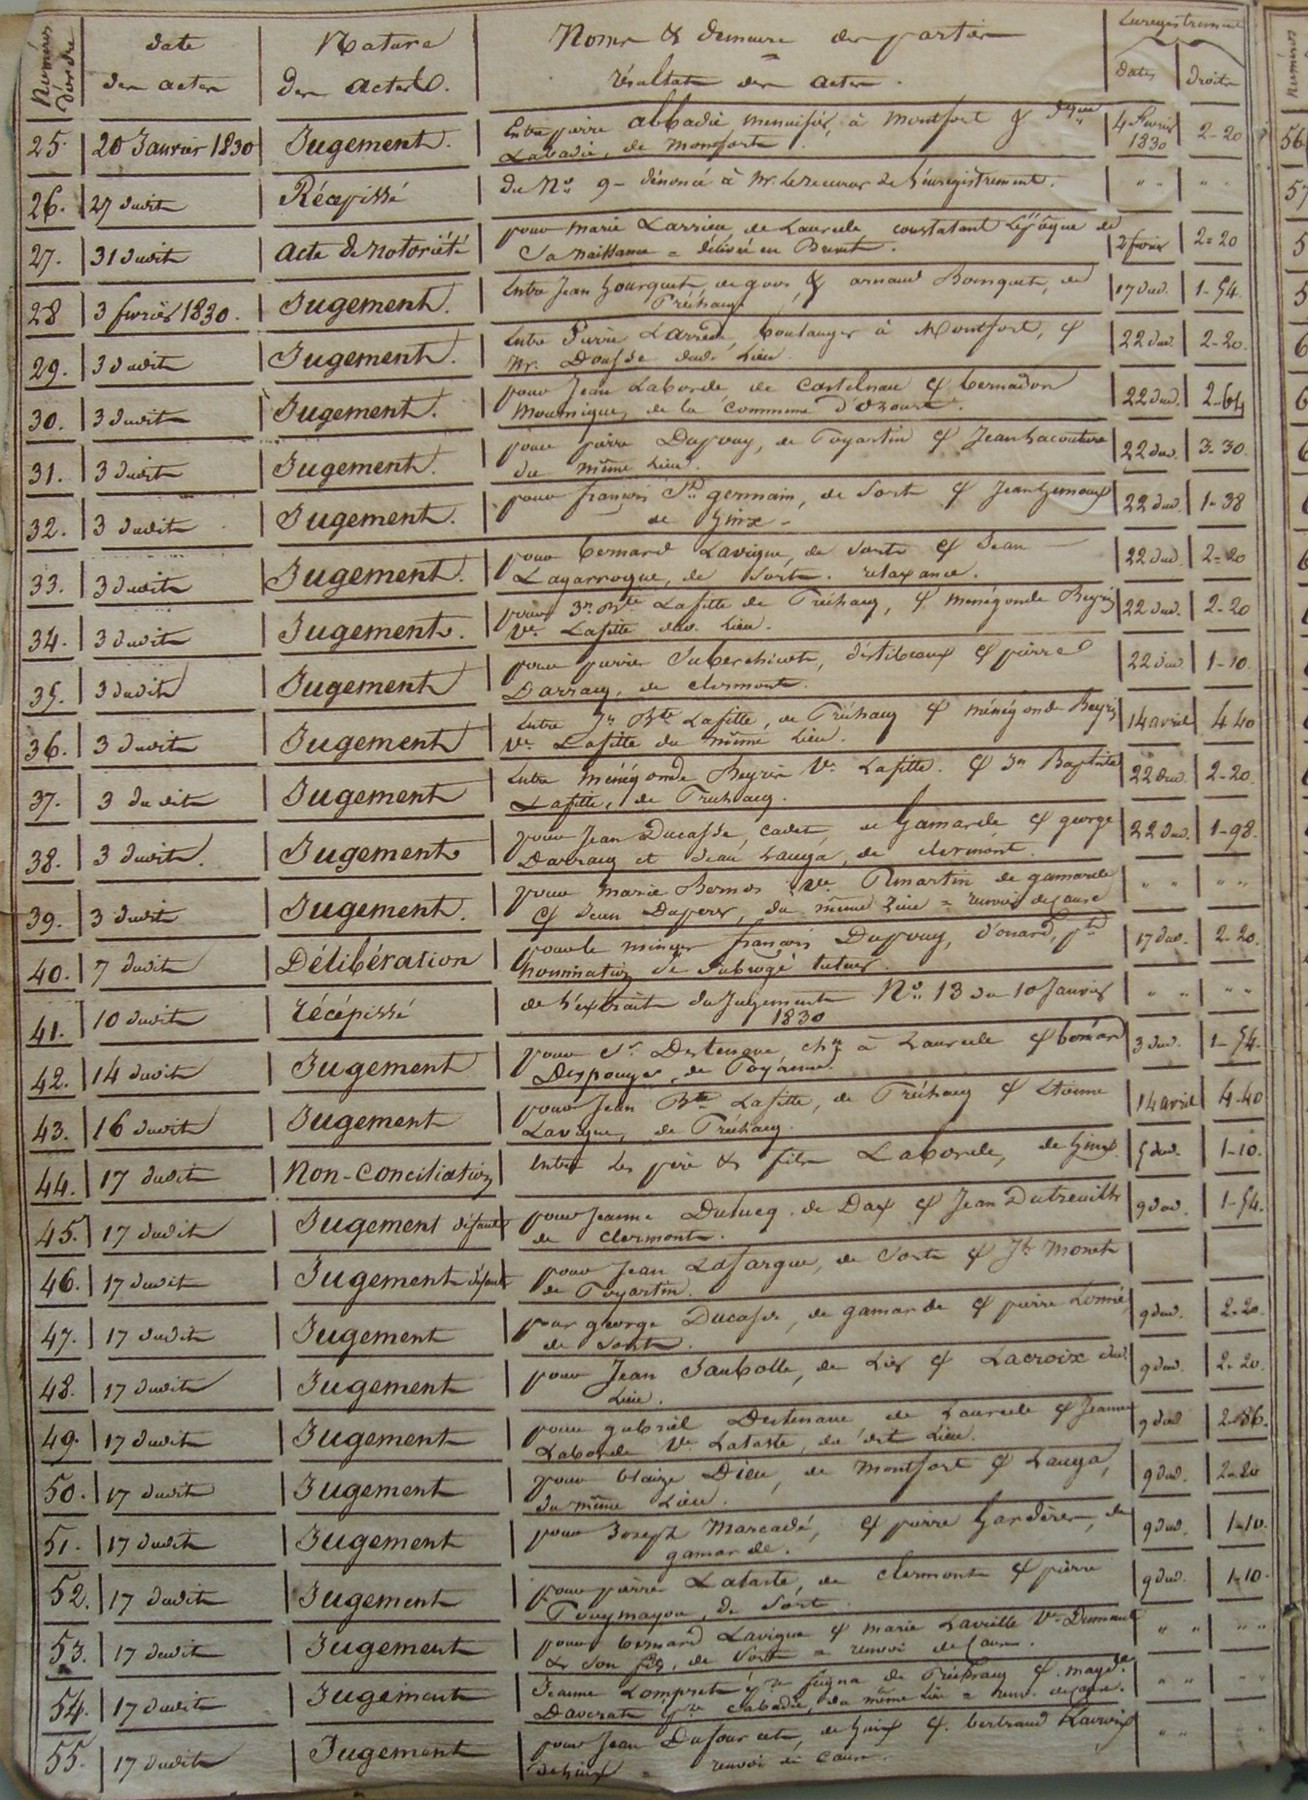 Numéros d'ordre | date des actes | Nature des actes. | Noms & demeure des parties résultats des actes. | Enregistrement dates | droits
25. | 20 Janvier 1830 | Jugement. | Entre pierre abbadie menuisier, à Montfort &
Labadie, de Monfort. | 4 février 1830 | 2-20
26. | 27 dudit | Récépissé | du No. 9 - dénoncé à Mr. Le receveur de l'enregistrement. | " " | " "
27. | 31 dudit | acte de Notoriété | pour Marie Larrieu, de Laurede, constatant l'époque de
Sa Naissance = délivré en Brevet. | 2 février | 2=20
28 | 3 février 1830. | Jugement. | Entre Jean Gourguet, de & arnaud Bouquet, de
Préchacq | 17 dud. | 1-54.
29. | 3 dudit | Jugement. | Entre Pierre Larrieu, boulanger à Montfort, &
Mr. Dousse dud. Lieu. | 22 dud. | 2-20.
30. | 3 dudit | Jugement. | pour Jean Laborde de Castelnau & bernadon
de la Commune d'Ozourt. | 22 dud. | 2-64
31. | 3 dudit | Jugement. | pour pierre Dupouy, de Poyartin & Jean Lacouture
du même Lieu. | 22 dud. | 3-30.
32. | 3 dudit | Jugement. | pour françois St. germain, de Sort & Jean
de hinx - | 22 dud. | 1-38
33. | 3 dudit | Jugement. | pour bernard Lavigne, de Sort & Jean
Lagarroque, de Sort. relaxance. | 22 dud. | 2=20
34. | 3 dudit | Jugement. | pour Jn. Bte. Lafitte de Préchacq, & Ménégonde Beyris
Ve. Lafitte dud. Lieu. | 22 dud. | 2-20
35. | 3 dudit | Jugement | pour pierre Suberchicot, destibeaux & pierre
Darracq, de clermont. | 22 dud. | 1-10.
36. | 3 dudit | Jugement | Entre Jn. Bte. Lafitte, de Préchacq & Ménégonde Beyris
Ve. Lafitte du même Lieu. | 14 avril | 4 40
37. | 3 dudit | Jugement | Entre Ménégonde Beyris Ve. Lafitte. & Jn Baptiste
Lafitte, de Préchacq. | 22 dud. | 2-20.
38. | 3 dudit. | Jugement | pour Jean Ducasse, cadet, de Gamarde & george
Darracq et Jean Lauga, de clermont. | 22 dud. | 1-98.
39. | 3 dudit | Jugement. | pour Marie Bernos Ve. de gamarde
& Jean Duper, du même Lieu = renvoi de cause | " " | " "
40. | 7 dudit | Délibération | pour le mineur françois Dupouy, d'onard, pte
Nomination de Subrogé tuteur. | 17 dud. | 2-20.
41. | 10 dudit | récépissé | de l'extrait du Jugement No. 13 du 10 Janvier
1830 | " " | " "
42. | 14 dudit | Jugement | pour Sr. Destenave, à Laurede & bernard
Despouys, de Poyanne. | 3 dud. | 1-54.
43. | 16 dudit | Jugement | pour Jean Bte. Lafitte, de Préchacq & Etienne
Lavigne, de Préchacq. | 14 avril | 4-40
44. | 17 dudit | Non-Conciliation | Entre Les père & fils Laborde, de hinx. | 5 dud. | 1-10.
45. | 17 dudit | Jugement défaut | pour Jeanne Dulucq de Dax & Jean Dutreuilh
de clermont. | 9 dud. | 1-54.
46. | 17 dudit | Jugement défaut | pour Jean Lafargue, de Sort & Monet
de Poyartin.
47. | 17 dudit | Jugement | pour george Ducasse, de gamarde & pierre Lonné,
de Sort. | 9 dud. | 2-20.
48. | 17 dudit | Jugement | pour Jean Saubotte, de Lier & Lacroix dud.
Lieu. | 9 dud. | 2-20.
49. | 17 dudit | Jugement | pour gabriel Destenave de Laurede & Jeanne
Laborde Ve. Lataste, du dit Lieu. | 9 dud | 2-86.
50. | 17 dudit | Jugement | pour blaize Dieu, de Montfort & Lauga,
du même Lieu. | 9 dud. | 2-20
51. | 17 dudit | Jugement | pour Joseph Marcadé, & pierre Gardères, de
gamarde. | 9 dud. | 1-10.
52. | 17 dudit | Jugement | pour pierre Lataste, de clermont & pierre
Pouymayou, de Sort. | 9 dud. | 1-10.
53. | 17 dudit | Jugement | pour bernard Lavigne & Marie Lavielle Ve. Dumont
& Son fils, de Sort = renvoi de Cause. | " " | " "
54. | 17 dudit | Jugement | Jeanne Lompret de Préchacq &
Daverat Labadie, du même Lieu = renv. de cause. | " " | " "
55. | 17 dudit | Jugement | pour Jean Dufourcet, de hinx &. bertrand Lacroix
de hinx = renvoi de cause. | " " | " "
Numéros
56
57